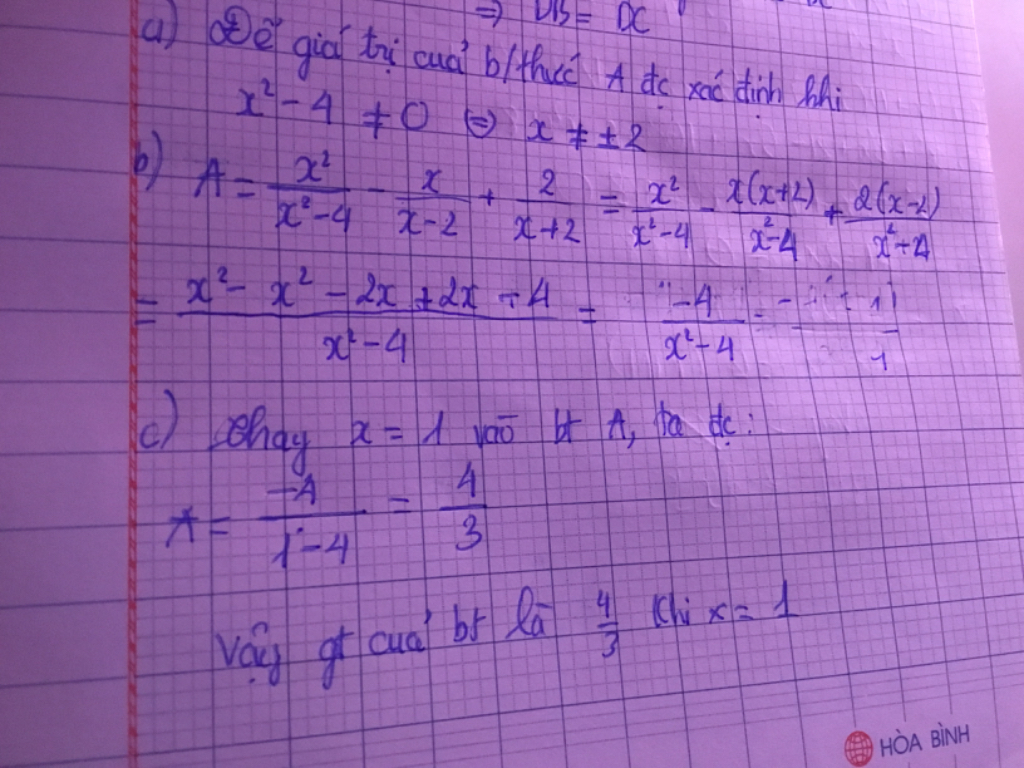 ⇒ DB = DC
a) Để giá trị của b/thức A đc xác định khi
x² - 4 ≠ 0 ⇔ x ≠ ± 2
b) A = x²/(x²-4) - x/(x-2) + 2/(x+2) = x²/(x²-4) - x(x+2)/(x²-4) + 2(x-2)/(x²-4)
= (x² - x² - 2x + 2x - 4)/(x²-4) = -4/(x²-4) =
c) Thay x = 1 vào bt A, ta đc:
A = -4/(1-4) = 4/3
Vậy gt của bt là 4/3 khi x = 1
HÒA BÌNH